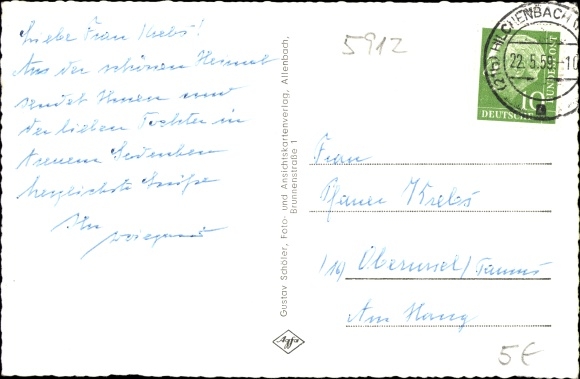 Liebe Frau Krebs!
Aus der schönen Heimat
sendet Ihnen und
der lieben Tochter in
treuem Gedenken
herzlichste Grüße
Ihr
5912
Gustav Schöler, Foto- und Ansichtskartenverlag, Allenbach,
Brunnenstraße 1
Agfa
(21b) HILCHENBACH
22.5.59.-10
10
BUNDESPOST
DEUTSCHE
Frau
Krebs
(16) Oberursel/Taunus
Am Hang
5€